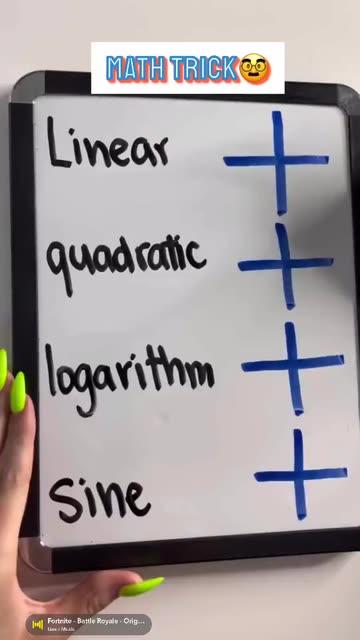 MATH TRICK🥸
Linear
quadratic
logarithm
sine
Fortnite - Battle Royale - Orig...